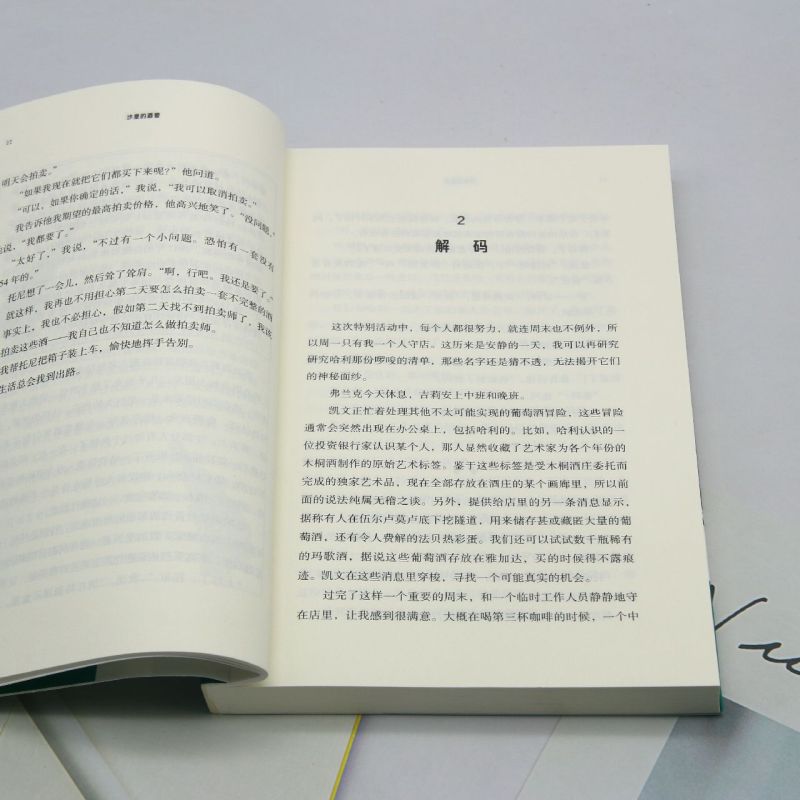 22
沙皇的酒窖
明天会拍卖。”
“如果我现在就把它们都买下来呢?”他问道。
“可以,如果你确定的话,”我说,“我可以取消拍卖。”
我告诉他我期望的最高拍卖价格,他高兴地笑了。“没问题,”
他说,“我都要了。”
“太好了,”我说,“不过有一个小问题。恐怕有一套没有
54 年的。”
托尼想了一会儿,然后耸了耸肩。“啊,行吧。我还是要了。”
就这样,我再也不用担心第二天要怎么拍卖一套不完整的酒
事实上,我也不必担心,假如第二天找不到拍卖师了,我该
拍卖这些酒——我自己也不知道怎么做拍卖师。
我帮托尼把箱子装上车,愉快地挥手告别。
生活总会找到出路。
2
解 码
这次特别活动中,每个人都很努力,就连周末也不例外,所
以周一只有我一个人守店。这历来是安静的一天,我可以再研究
研究哈利那份啰嗦的清单,那些名字还是猜不透,无法揭开它们
的神秘面纱。
弗兰克今天休息,吉莉安上中班和晚班。
凯文正忙着处理其他不太可能实现的葡萄酒冒险,这些冒险
通常会突然出现在办公桌上,包括哈利的。比如,哈利认识的一
位投资银行家认识某个人,那人显然收藏了艺术家为各个年份的
木桐酒制作的原始艺术标签。鉴于这些标签是受木桐酒庄委托而
完成的独家艺术品,现在全部存放在酒庄的某个画廊里,所以前
面的说法纯属无稽之谈。另外,提供给店里的另一条消息显示,
据称有人在伍尔卢莫卢底下挖隧道,用来储存甚或藏匿大量的葡
萄酒,还有令人费解的法贝热彩蛋。我们还可以试试数千瓶稀有
的玛歌酒,据说这些葡萄酒存放在雅加达,买的时候得不露痕
迹。凯文在这些消息里穿梭,寻找一个可能真实的机会。
过完了这样一个重要的周末,和一个临时工作人员静静地守
在店里,让我感到很满意。大概在喝第三杯咖啡的时候,一个中